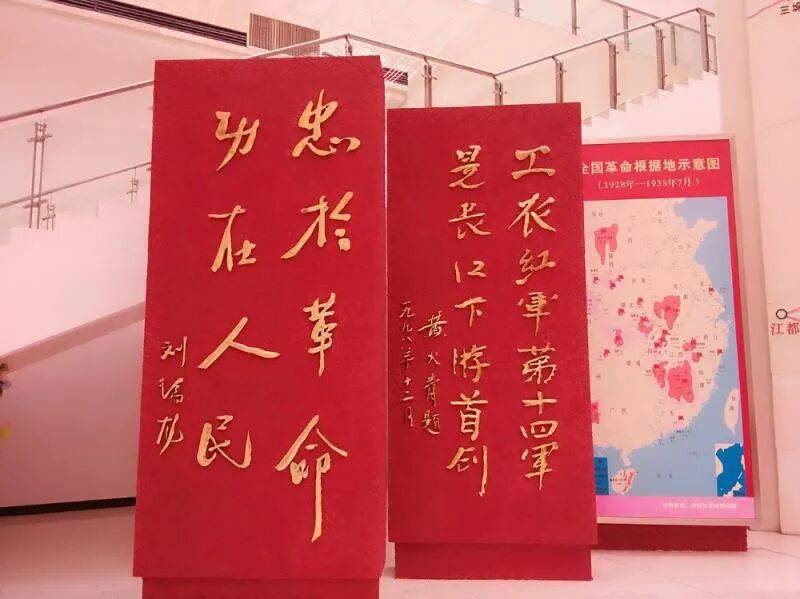 忠於革命
功在人民
刘瑞龙
工农红軍第十四軍
是長江下游首创
黄火青题
十二月
全国革命根据地示意图
(1928年—1935年7月)
江都